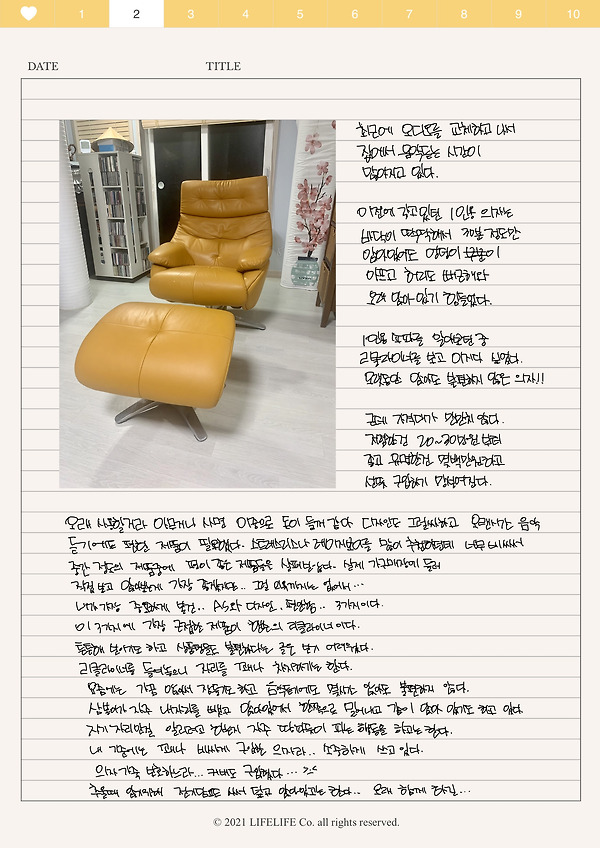 1 2 3 4 5 6 7 8 9 10
DATE TITLE
최근에 오디오를 교체하고 나서
집에서 음악듣는 시간이
많아지고 있다.
이전에 갖고있던 1인용 의자는
바닥이 딱딱해서 30분 정도만
앉아있어도 엉덩이 부분이
아프고 허리도 뻐근해와
오래 앉아 있기 힘들었다.
1인용 소파를 알아보던 중
리클라이너를 보고 이거다 싶었다.
오랫동안 앉아도 불편하지 않은 의자!!
근데 가격대가 만만치 않다.
저렴한건 20~30만원부터
좋고 유명한건 몇백만원하고
선뜻 구입하기 망설여진다.
오래 사용할거라 이모거나 사면 이중으로 돈이 들게 같다 디자인도 그럴싸하고 오랜시간 음악
듣기에도 편한 제품이 필요했다. 스트레스리스나 레이지보이를 많이 추천하던데 너무 비싸서
중간 정도의 제품중에 평이 좋은 제품들을 살펴보았다. 실제 가구매장에 들러
직접 보고 앉아보는게 가장 좋겠지만.. 그럴 여유까지는 없어서...
내가 가장 중요하게 본건.. AS와 디자인.. 편안함.. 3가지이다.
이 3가지에 가장 근접한 제품이 의 리클라이너이다.
튼튼해 보이기도 하고 상품평을 불편하다는 글은 보기 어려웠다.
리클라이너를 들여놓으니 자리를 꽤나 차지하기는 한다.
요즘에는 가끔 앉아서 잠들기도 하고 앉아도 불편하지 않다.
가 자주 내자리를 뺏고 앉아있어서 밀어내고 같이 앉아 있기도 하고 있다
자기 자리인걸 알리려고 자주 하는 행동을 하고는 한다.
내 기준에는 꽤나 비싸게 구입한 의자라.. 소중하게 쓰고 있다.
의자가죽 보호하느라... 커버도 구입했다... ><
추울때 있기위해 전기담요도 사서 덮고 앉아있고는 한다.. 오래 함께 하길...
© 2021 LIFELIFE Co. all rights reserved.